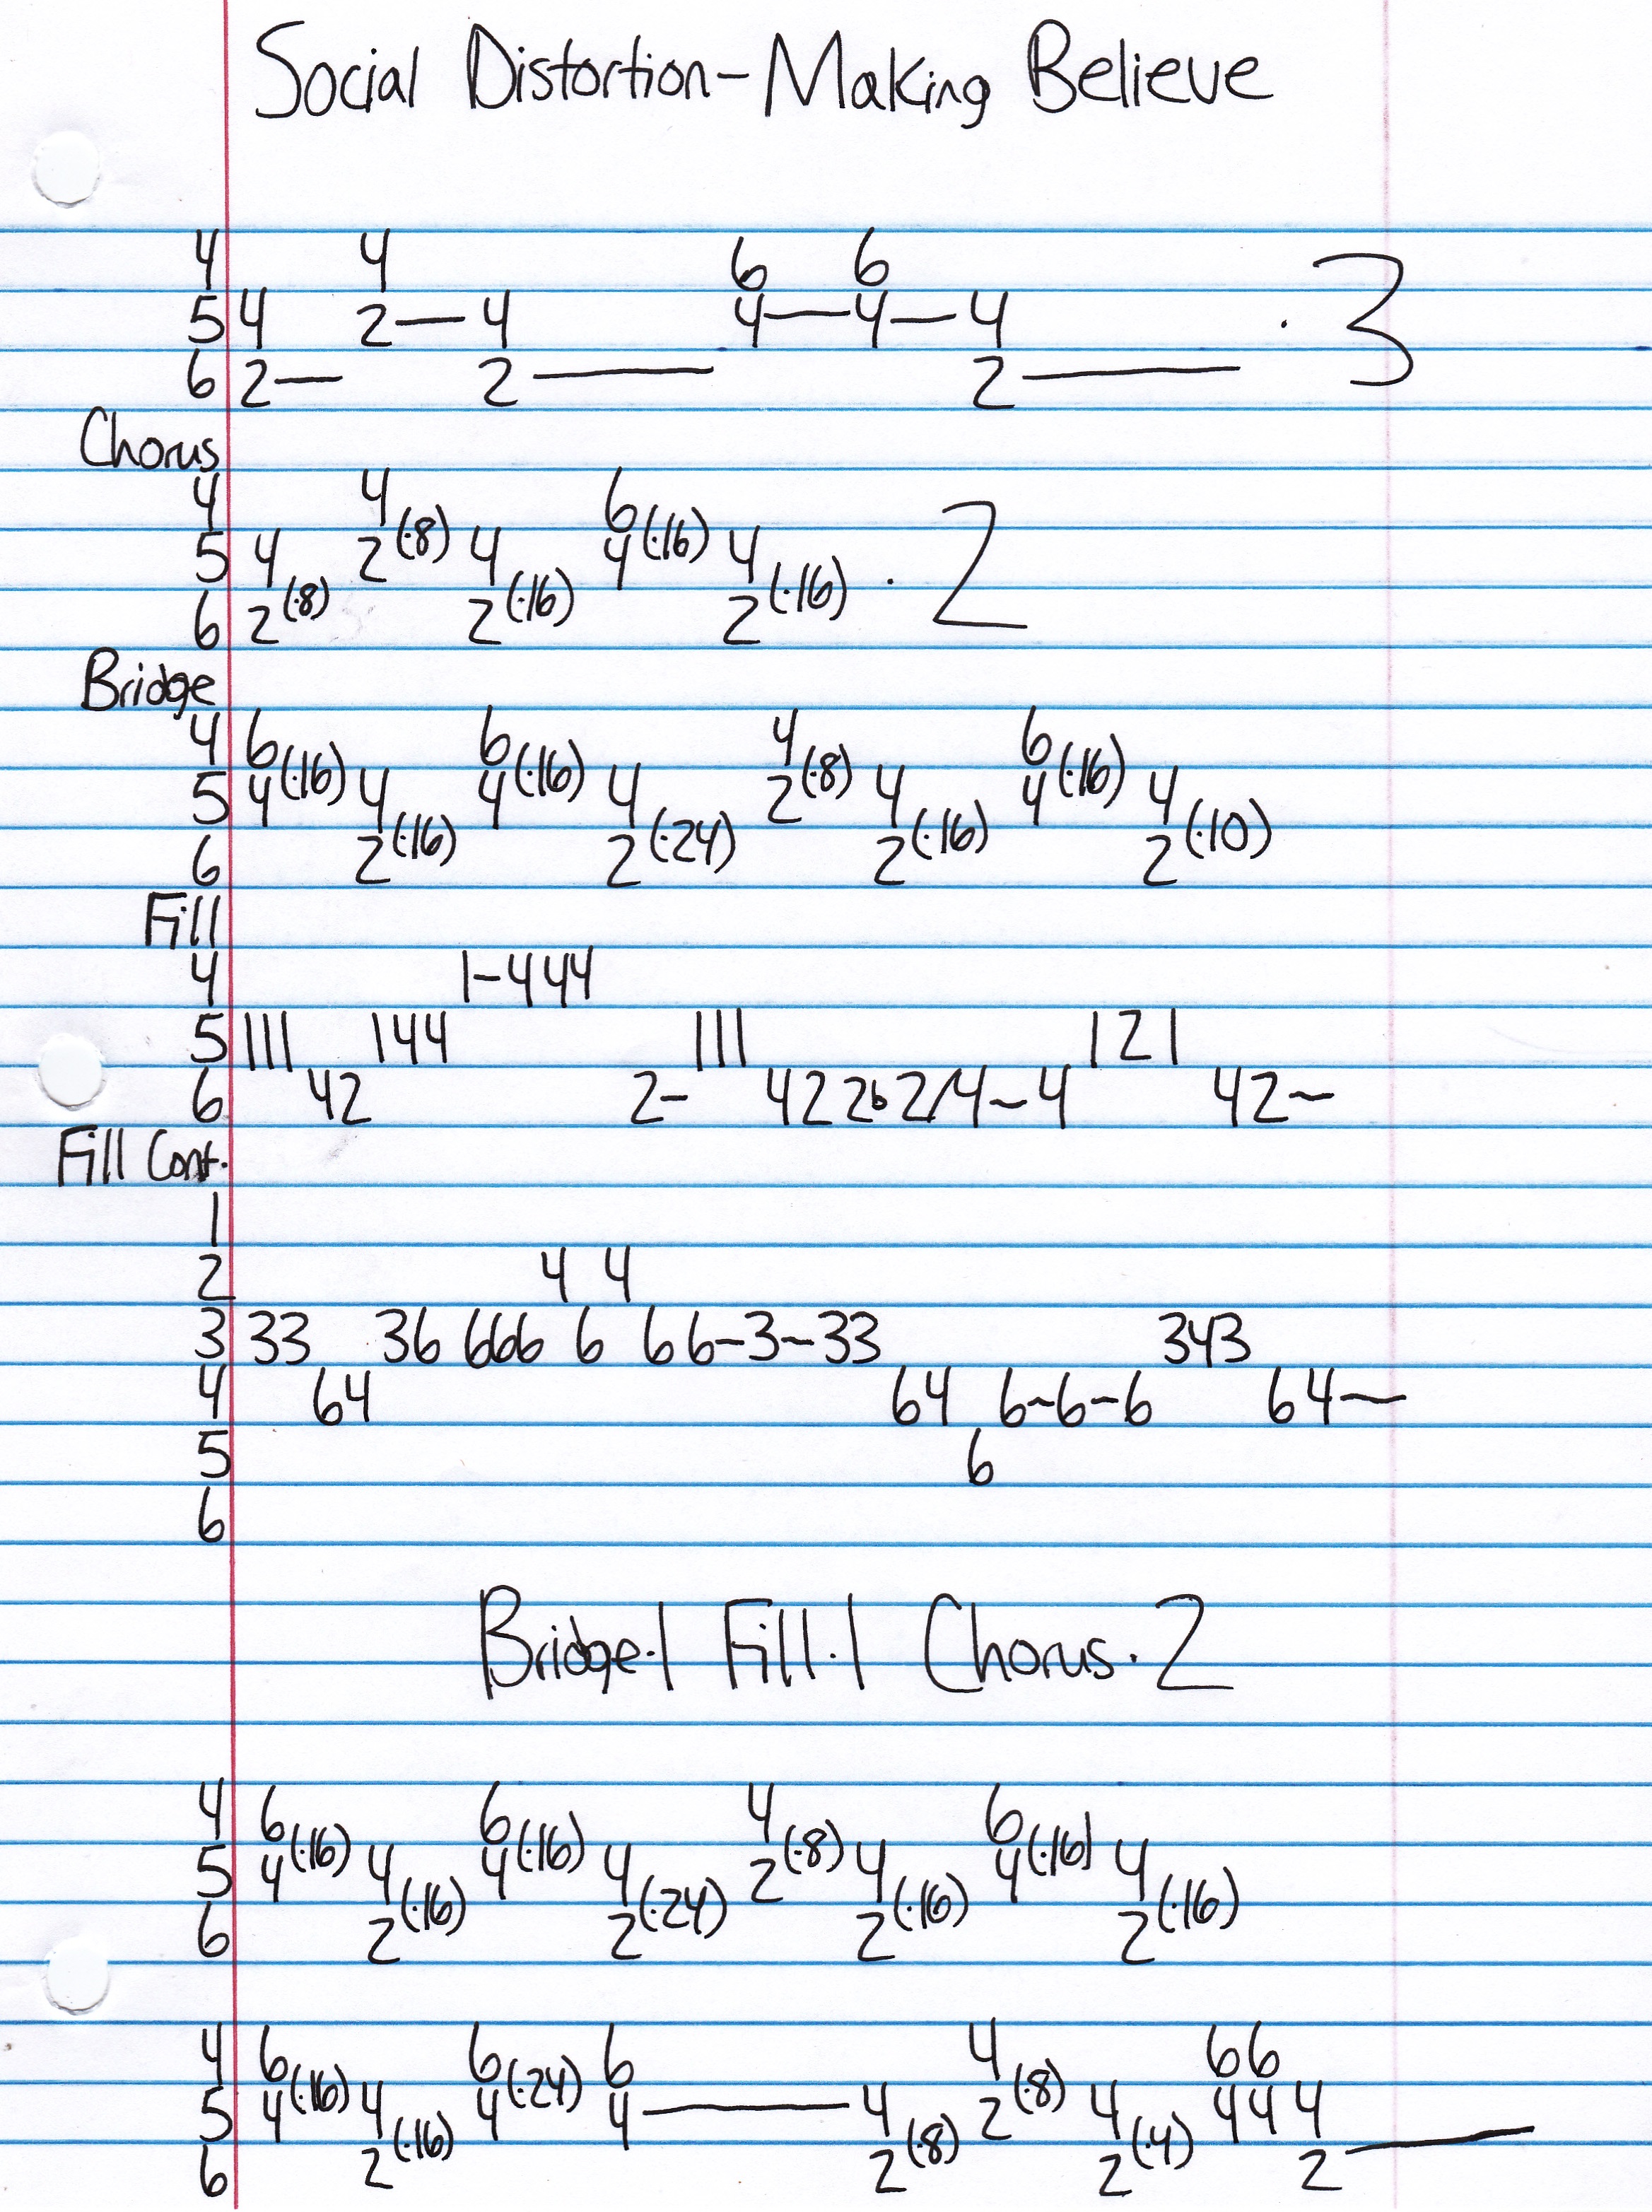 Social Distortion-Making Believe
4 4 6 6
5 4 2—4 4—4—4 ·3
6 2— 2—— 2——
Chorus
4 4 6
5 4 2(·8) 4 4(·16) 4 ·2
6 2(·8) 2(·16) 2(·16)
Bridge
4 6 6 4 6
5 4(·16) 4 4(·16) 4 2(·8) 4 4(·16) 4
6 2(·16) 2(·24) 2(·16) 2(·10)
Fill
4 1-444
5 111 144 111 121
6 42 2- 42 2b2/4~4 42~
Fill Cont.
1
2 4 4
3 33 36 666 6 6 6-3~33 343
4 64 64 6~6-6 64~
5 6
6
Bridge·1 Fill·1 Chorus·2
4 6 6 4 6
5 4(·16) 4 4(·16) 4 2(·8) 4 4(·16) 4
6 2(·16) 2(·24) 2(·16) 2(·16)
4 6 6 6 4 66
5 4(·16) 4 4(·24) 4—— 4 2(·8) 4 44 4
6 2(·16) 2(·8) 2(·4) 2——